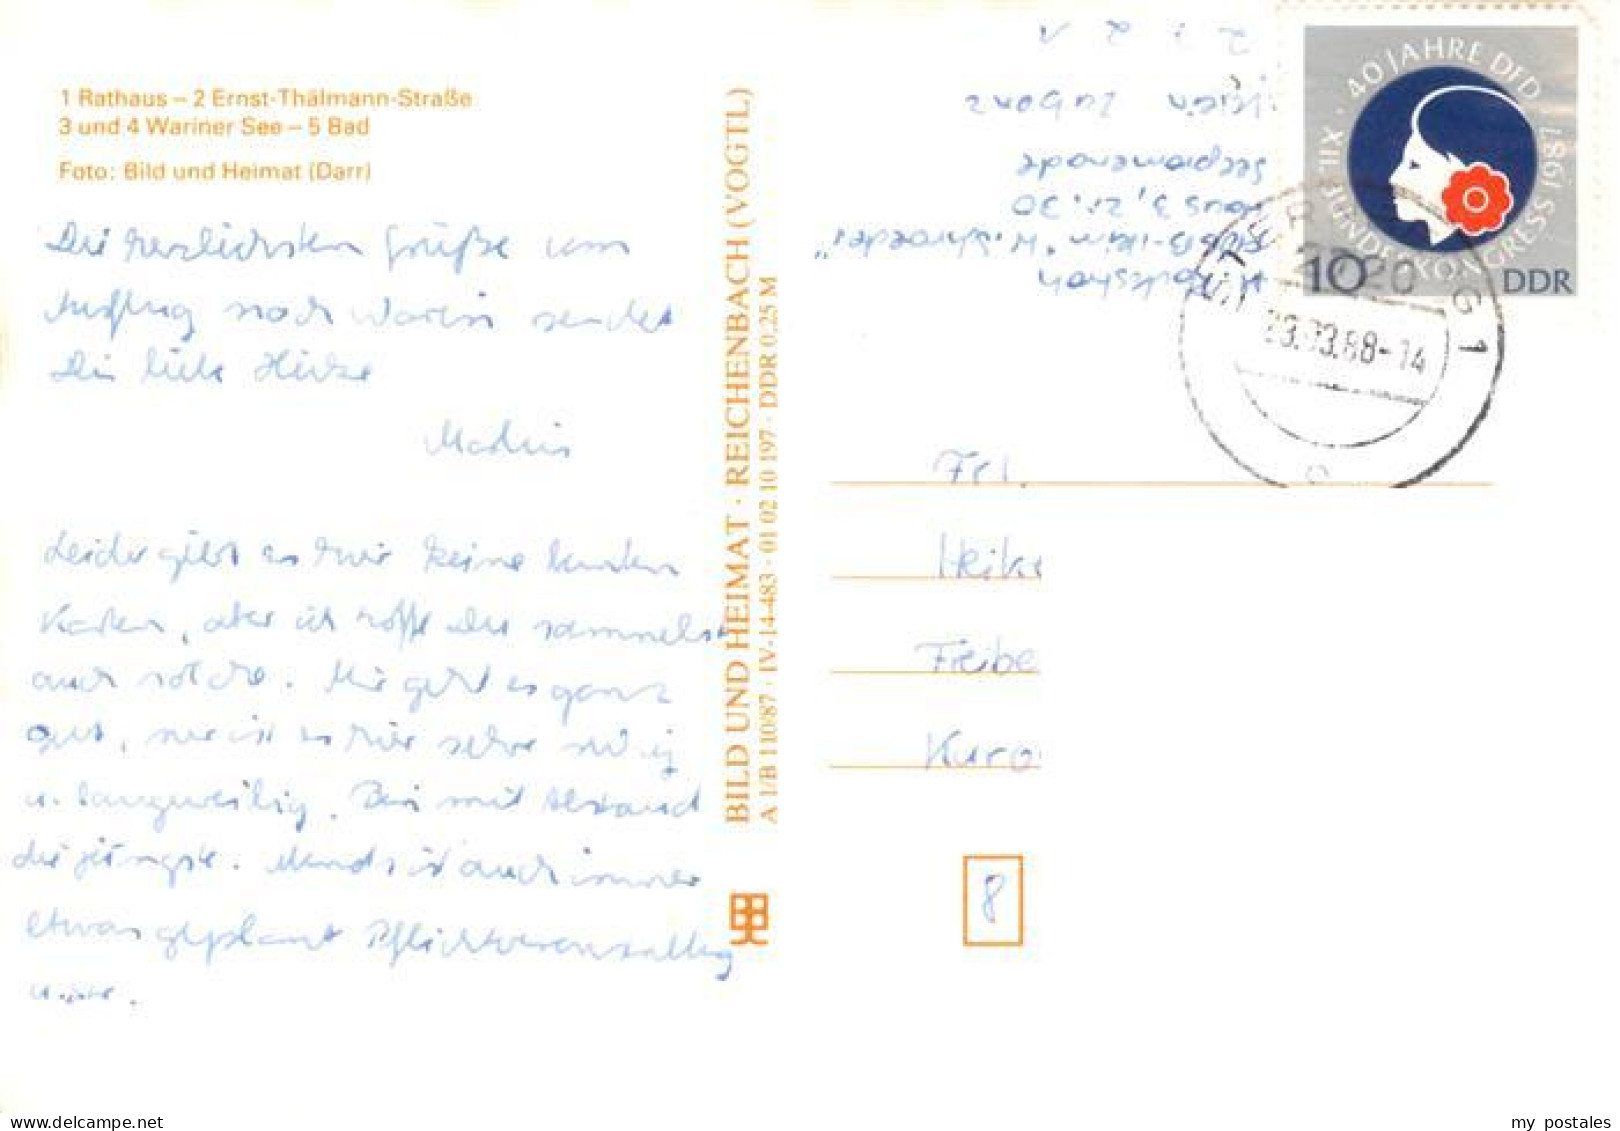 1 Rathaus – 2 Ernst-Thälmann-Straße
3 und 4 Wariner See – 5 Bad
Foto: Bild und Heimat (Darr)
Die herzlichsten Grüße vom
Ausflug nach Warin sendet
Dir liebe Heike
Leider gibt es hier keine bunten
Karten, aber ich hoffe du sammelst
auch solche. Mir geht es ganz
gut, nur ist es hier sehr ruhig
u. langweilig. Bin mit Abstand
der jüngste. Abends ist auch immer
etwas geplant Pflichtveranstaltung
BILD UND HEIMAT · REICHENBACH (VOGTL)
A 1/B 110/87 · IV-14-483 · 01 02 10 197 · DDR 0,25 M
"H. Schroeder"
Haus 3, Zi. 30
Seepromenade
Klein Labenz
2721
XII. BUNDESKONGRESS 1987 · 40 JAHRE DFD
10 DDR
STERNBERG 1
2720
23.03.88-14
Frl.
Heike
Freibe
Kuro
8
my postales